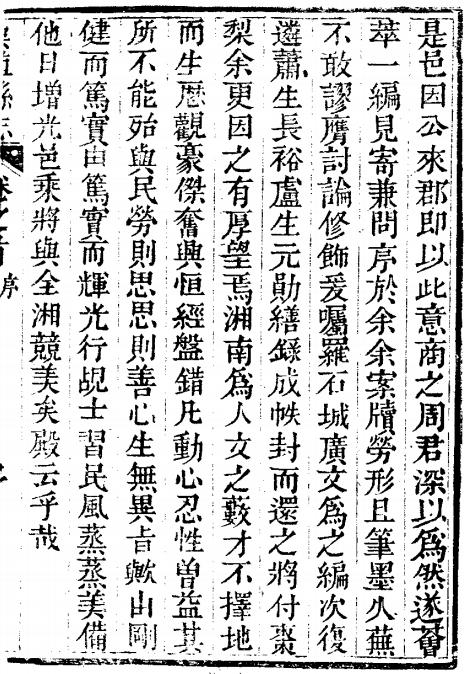 是邑因公來郡即以此意商之周君深以爲然遂薈
萃一編見寄兼問序於余余案牘勞形且筆墨久蕪
不敢謬膺討論修飾爰囑羅石城廣文爲之編次復
遴蕭生長裕盧生元勛繕錄成帙封而還之將付棗
梨余更因之有厚望焉湘南爲人文之藪才不擇地
而生歷觀豪傑奮興恒經盤錯凡動心忍性曾益其
所不能殆與民勞則思思則善心生無異旨歟山剛
健而篤實由篤實而輝光行覘士習民風蒸蒸美備
他日增光邑乘將與全湘競美矣殿云乎哉
序